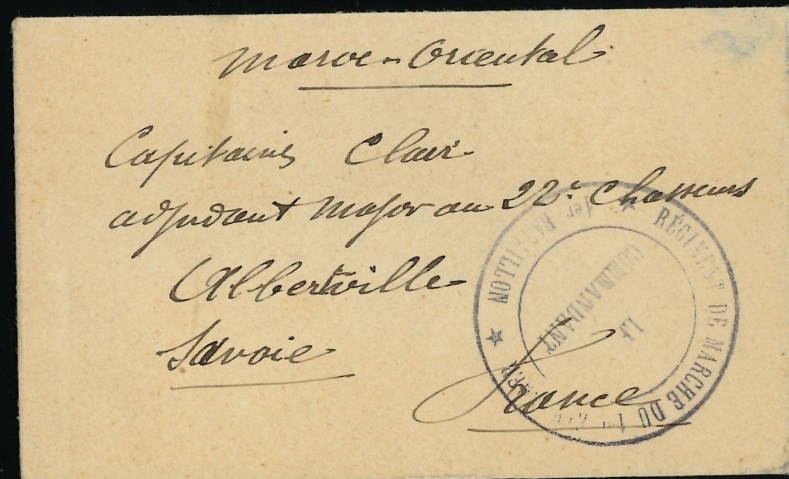 Maroc-Oriental
Capitaine Clair
adjudant Major au 22e Chasseurs
Albertville
Savoie
France
RÉGIMENT DE MARCHE DU 1er
1er BATAILLON
LE
COMMANDANT